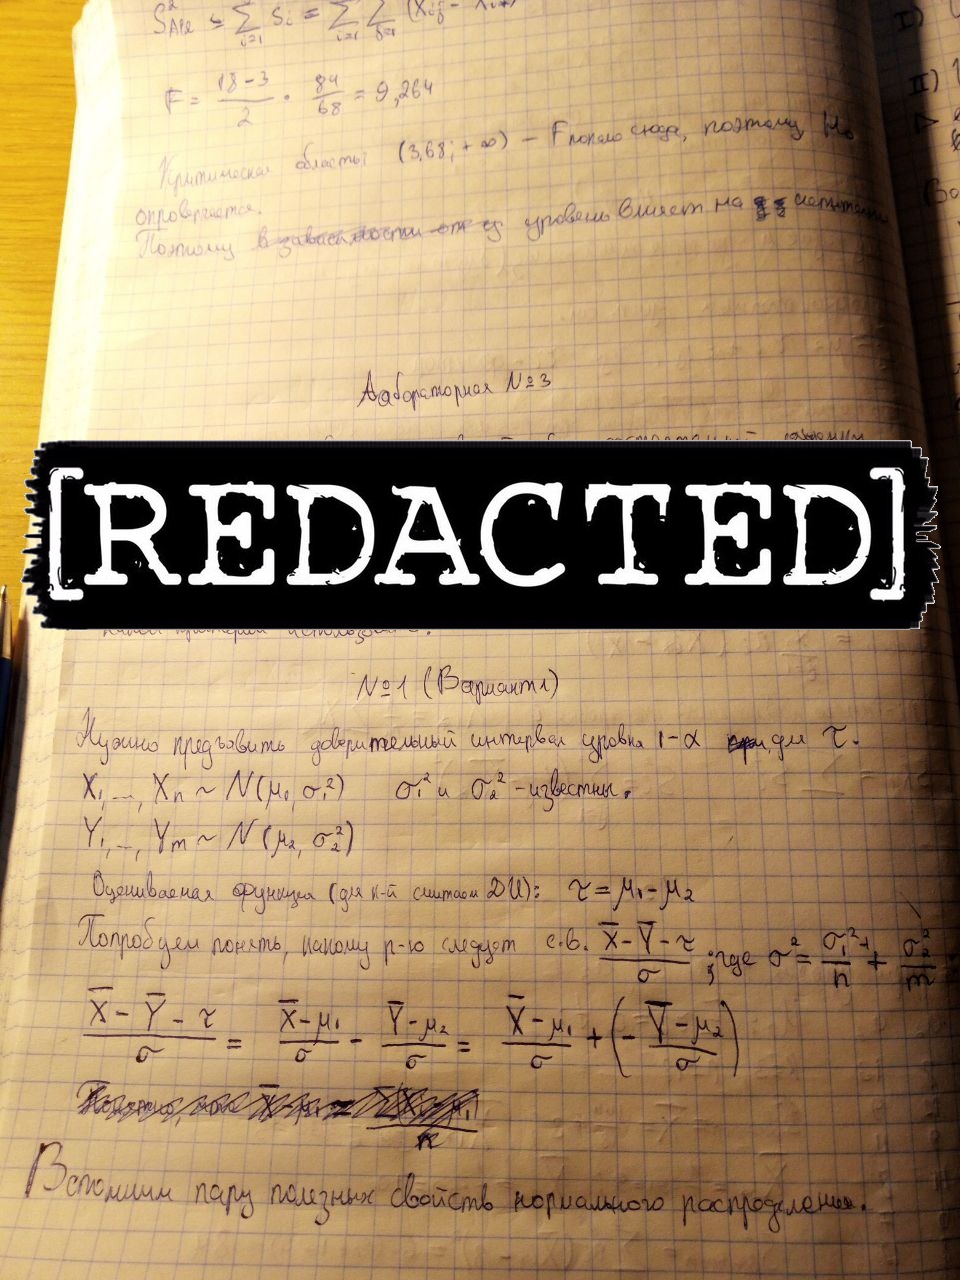 S²  = Σ Sᵢ = Σ Σ (Xᵢⱼ - 
F = (18-3)/2 · 84/68 = 9,264
Критическая область: (3,68; +∞) — F попало сюда, поэтому H₀
опровергается.
Поэтому уровень влияет на
Лабораторная №3
[REDACTED]
№1 (Вариант 1)
Нужно предъявить доверительный интервал уровня 1-α для τ.
X₁, ..., Xₙ ~ N(μ₁, σ₁²) σ₁² и σ₂² - известны.
Y₁, ..., Yₘ ~ N(μ₂, σ₂²)
Оцениваемая функция (для к-й считаем ДИ): τ = μ₁ - μ₂
Попробуем понять, какому р-ю следует с.в. (X̄ - Ȳ - τ)/σ ; где σ² = σ₁²/n + σ₂²/m
(X̄ - Ȳ - τ)/σ = (X̄ - μ₁)/σ - (Ȳ - μ₂)/σ = (X̄ - μ₁)/σ + (- (Ȳ - μ₂)/σ)
Вспомним пару полезных свойств нормального распределения.